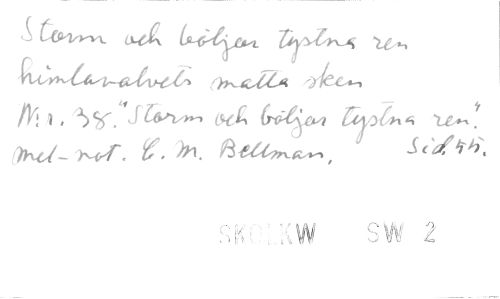 Storm och böljar tystna ren
himlavalvets matta sken
N:r. 38. "Storm och böljar tystna ren."
mel-not. C. M. Bellman, Sid. 45.
SKOLKW SW 2